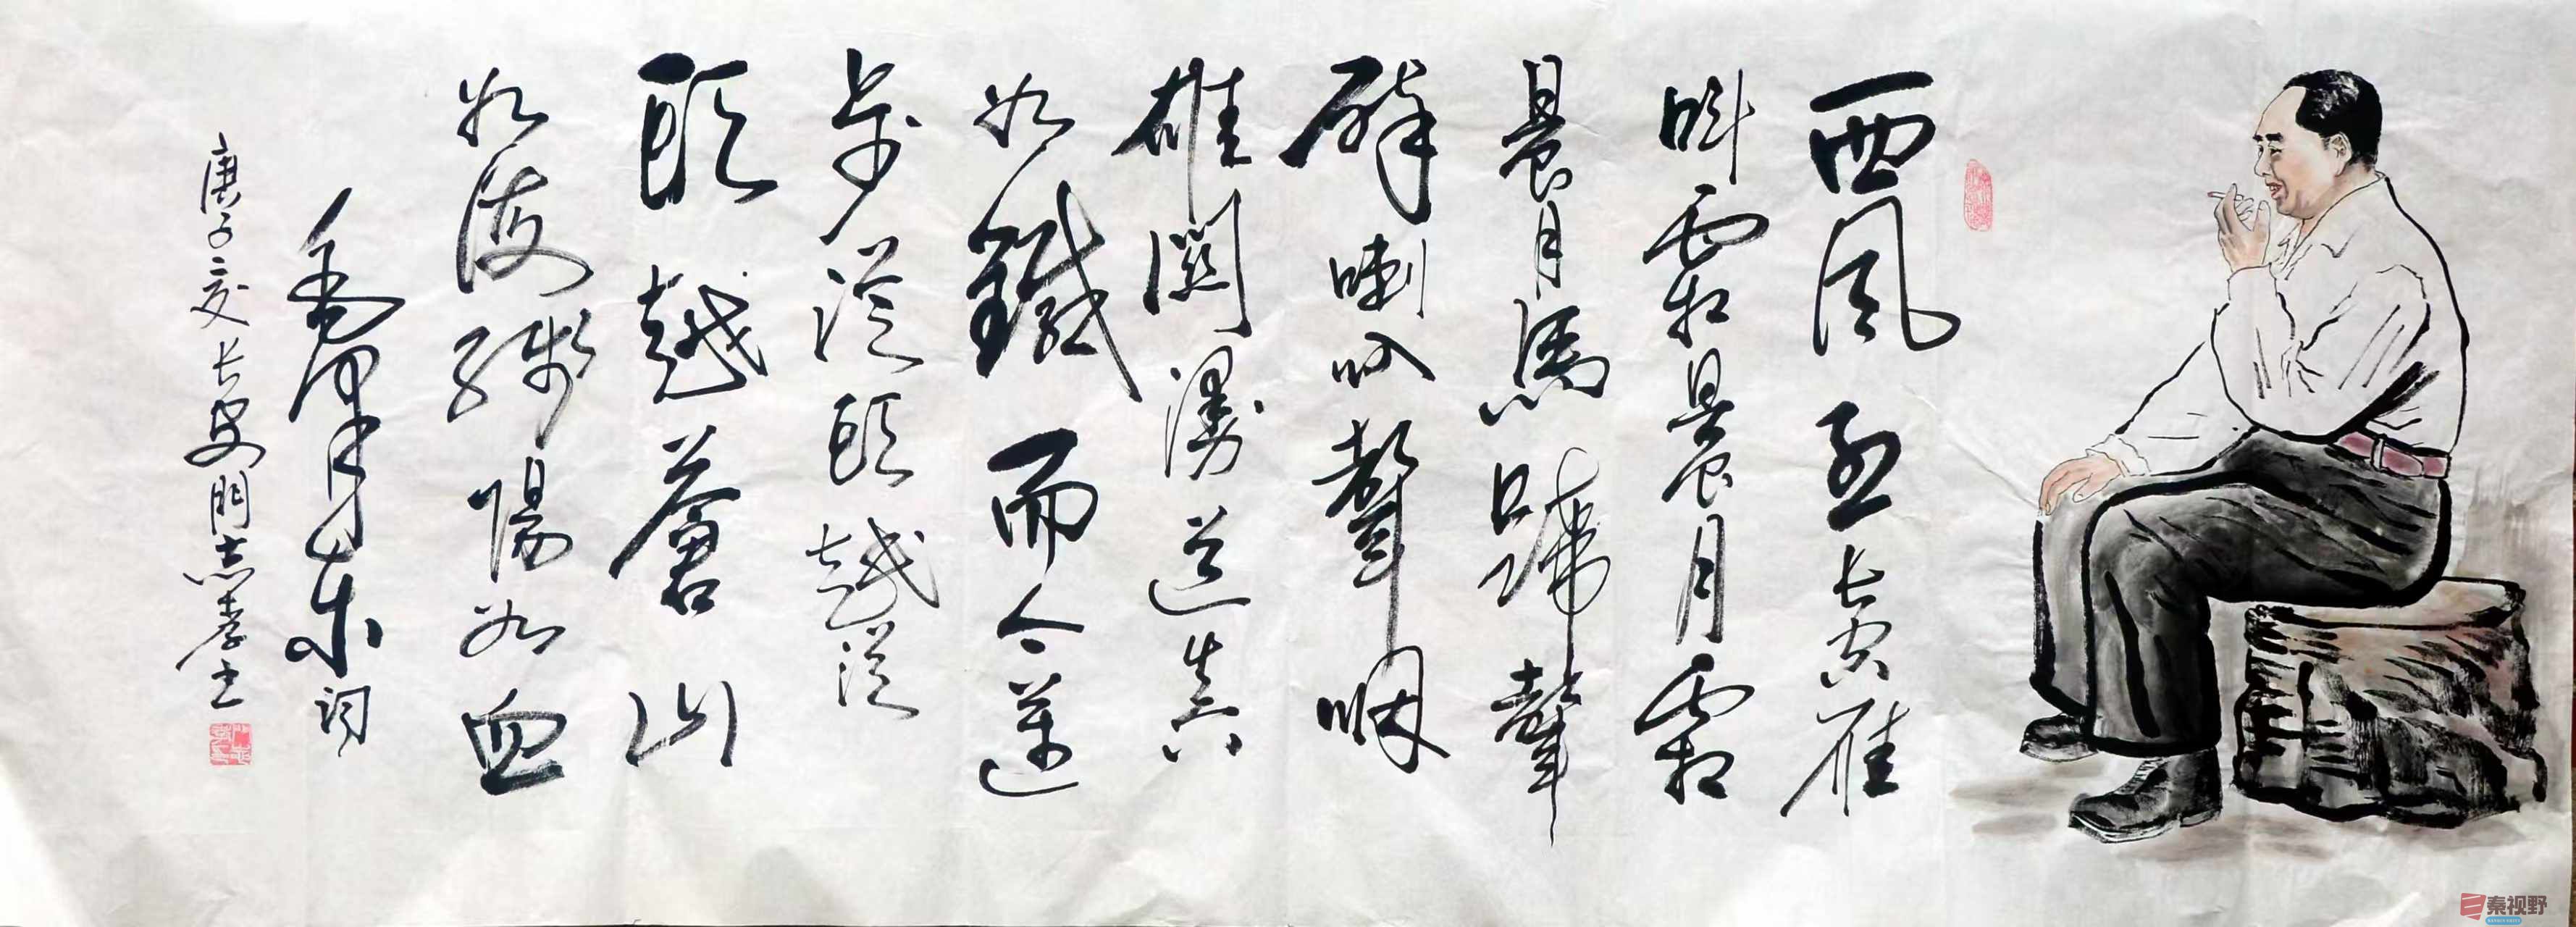 西风烈长空雁
叫霜晨月霜
晨月馬蹄聲
碎喇叭聲咽
雄關漫道真
如鐵而今邁
步從頭越從
頭越蒼山
如海殘陽如血
毛澤東詞
庚子夏长安門志孝书
秦视野